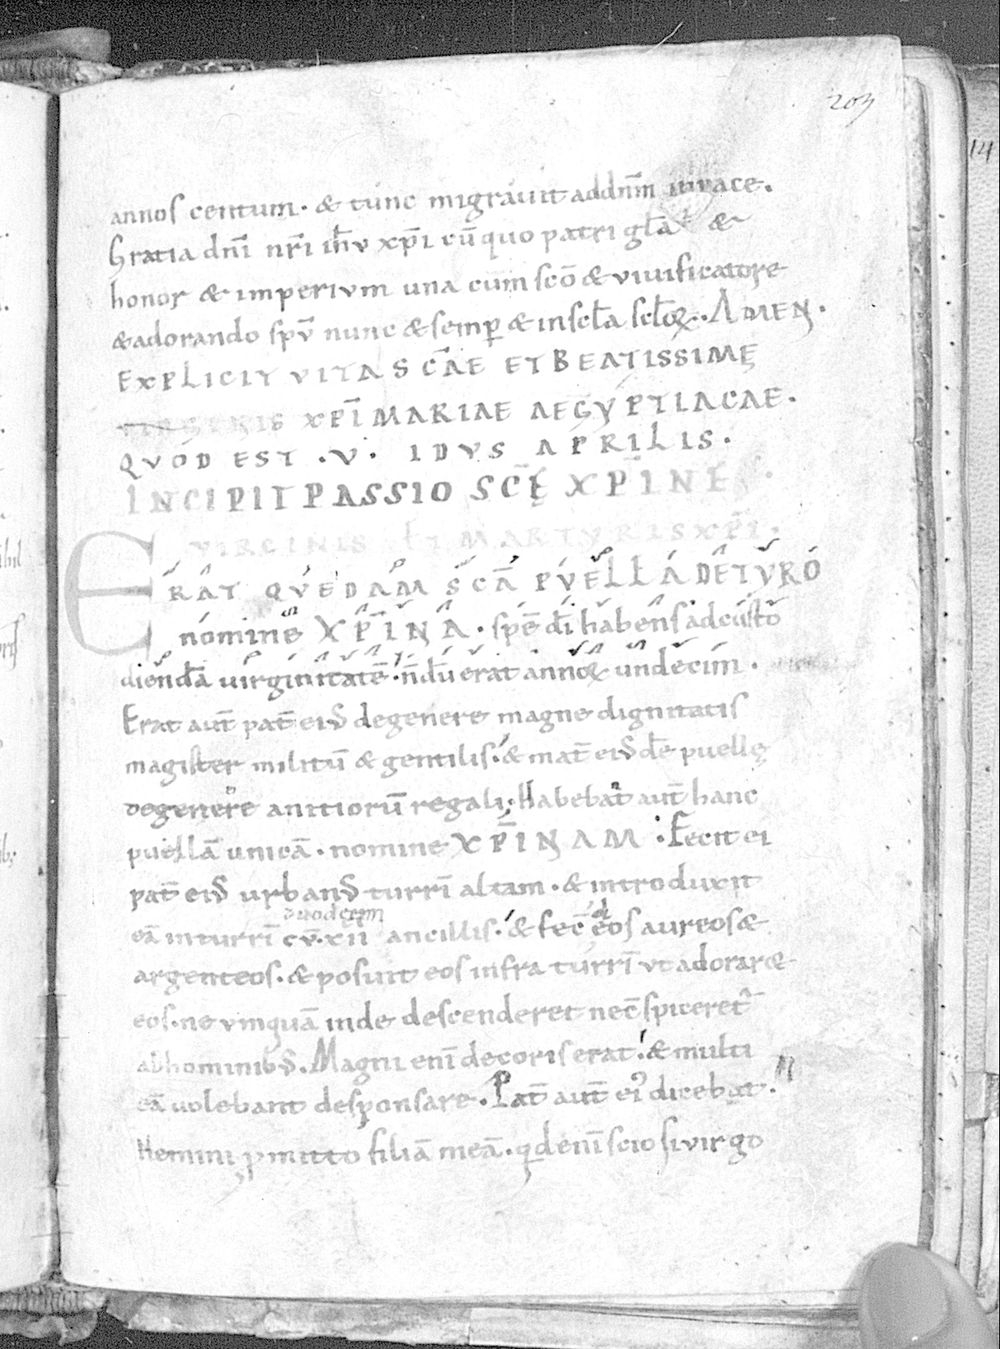 203
14
annos centum · & tunc migrauit addn̄m inpace.
Gratia dn̄i nr̄i ih̄v xp̄i cū quo patri gl̄a &
honor & imperivm una cum scō & viuificatore
& adorando spū nunc & semꝑ & inscl̄a scl̄oꝝ. AMEN.
EXPLICIT VITA SC̄AE ET BEATISSIMĘ
VIRGINIS XP̄I MARIAE AEGYPTIACAE.
QVOD EST .V. IDVS APRILIS.
INCIPIT PASSIO SC̄Ę XP̄INE
VIRGINIS ET MARTYRIS XP̄I.
ERAT QVEDAM SC̄A PVELLA DETYRO
nomine XP̄INA. spē dī habens adcusto
diendā uirginitatē. n̄dū erat annoꝝ undecim.
Erat aut̄ pat̄ eiꝰ degenere magne dignitatis
magister militū & gentilis. & mat̄ eiꝰdē puellę
degenere anitiorū regali. Habebat aut̄ hanc
puellā unicā. nomine XP̄INAM. Fecit ei
pat̄ eiꝰ urbanꝰ turrī altam. & introduxit
duodecem
eā inturrī cū.xii ancillis. & fec̄ eos aureos &
argenteos. & posuit eos infra turrī vt adorar&
eos. ne vmquā inde descenderet nec̄spiceret̄
abhominibꝰ. Magni enī decoris erat. & multi
eā uolebant desponsare. Pat̄ aut̄ ei dicebat.
Nemini ꝑmitto filiā meā. qd enī scio si virgo